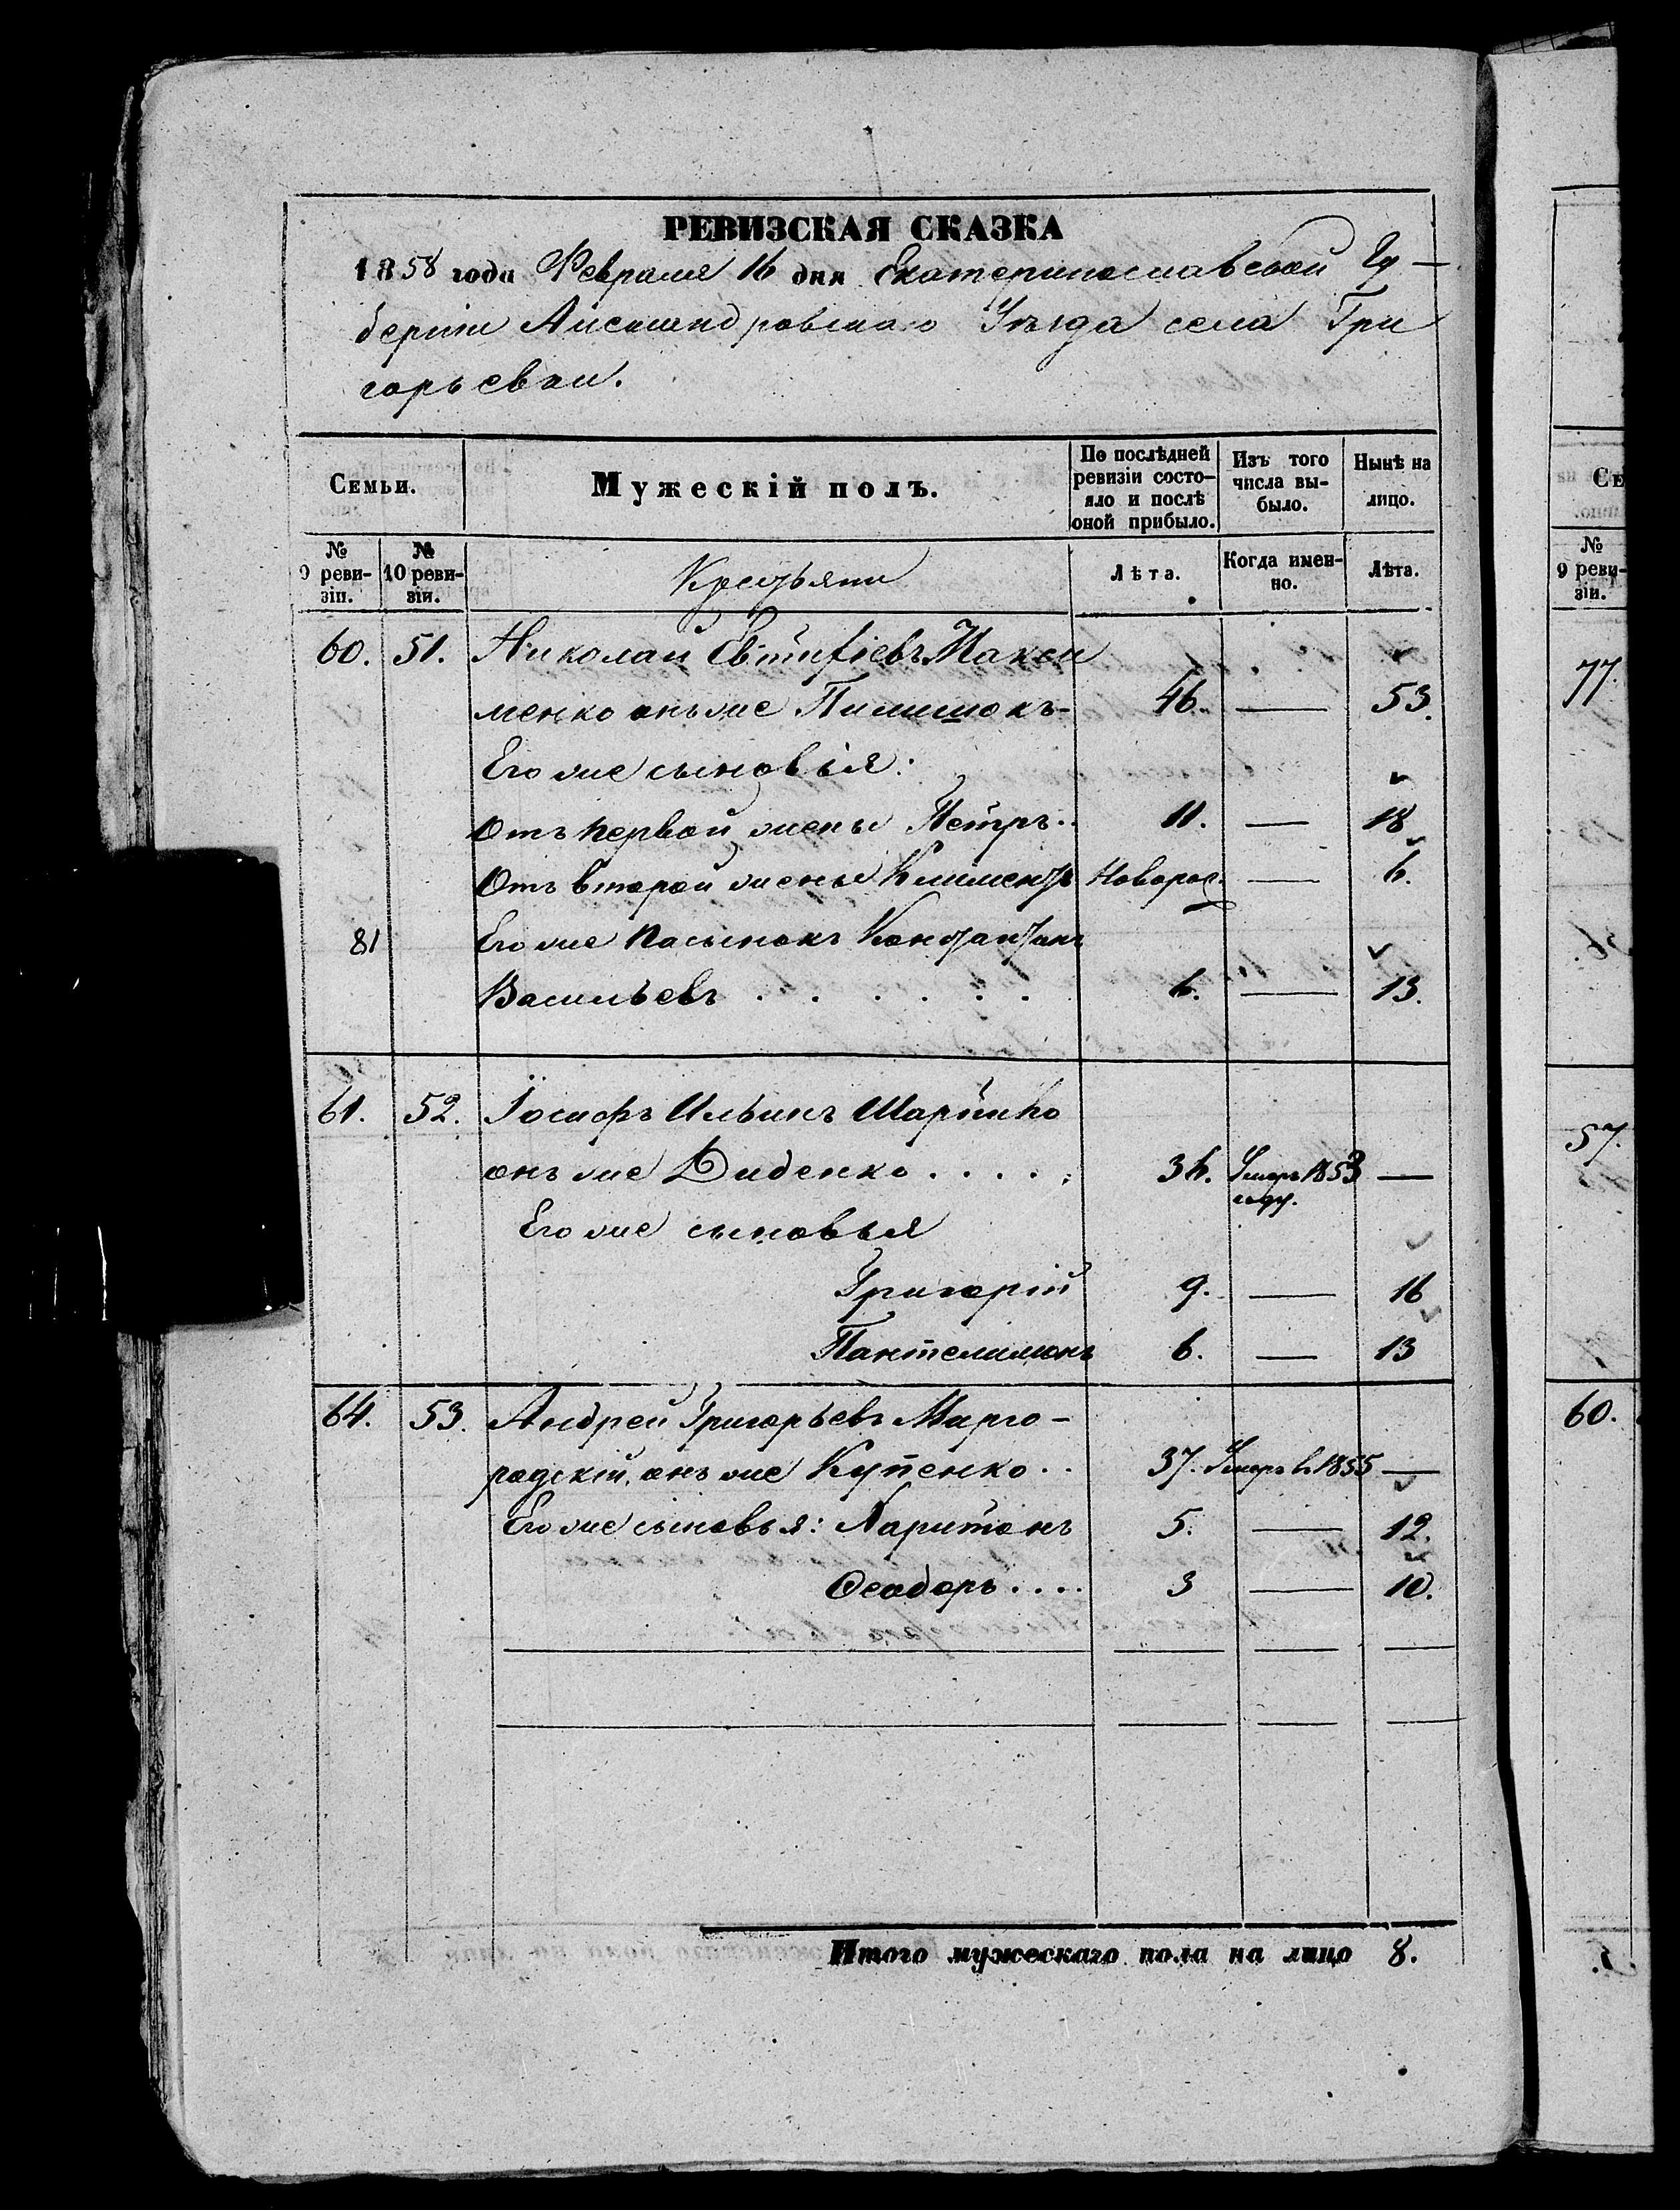 РЕВИЗСКАЯ СКАЗКА
1858 года Февраля 16 дня Екатеринославской Гу-
берніи Александровскаго Уѣзда села Гри
горьевки.
Семьи. Мужескій полъ. По послѣдней ревизіи состо-яло и послѣ оной прибыло. Изъ того числа вы-было. Нынѣ на лицо.
№ 9 реви-зіи. № 10 реви-зіи. Крестьяни Лѣта. Когда имен-но. Лѣта.
60. 51. Николай Евтифіевъ Макси
менко онъ же Пилишокъ- 46. — 53.
Его же сыновья:
Отъ первой жены Петръ.. 11. — 18
Отъ второй жены Климентъ Новорож. — 6.
81 Его же пасынокъ Константинъ
Васильевъ . . . . . . 6. — 13.
61. 52. Іосифъ Ильинъ Шарпинко
онъ же Диденко . . . . . 36. Умеръ 1853 —
году.
Его же сыновья
Григорій 9. — 16
Пантелимонъ 6. — 13
64. 53. Андрей Григорьевъ Мирго-
родскій, онъ же Купенко.. 37. Умеръ в 1855 —
Его же сыновья: Харитонъ 5. — 12.
Феодоръ.... 3 — 10.
Итого мужескаго пола на лицо 8.
Се
№ 9 реви-зіи.
77.
57.
60.